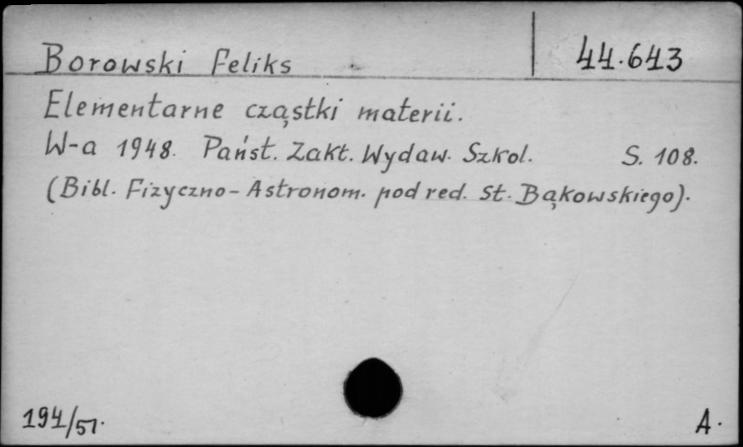 Borowski Feliks 44.643
Elementarne cząstki materii.
W-a 1948. Państ. Zakt. Wydaw. Szkol. S. 108.
(Bibl. Fizyczno-Astronom. pod red. St. Bąkowskiego).
194/51. A.